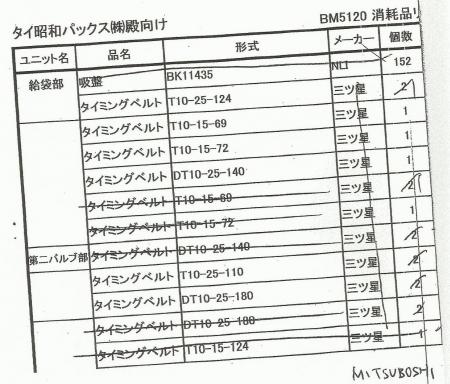 タイ昭和パックス㈱殿向け BM5120 消耗品リ
ユニット名 品名 形式 メーカー 個数
給袋部 吸盤 BK11435 NLI 152
タイミングベルト T10-25-124 三ツ星 2 1
タイミングベルト T10-15-69 三ツ星 1
タイミングベルト T10-15-72 三ツ星 1
タイミングベルト DT10-25-140 三ツ星 1
タイミングベルト T10-15-69 三ツ星 2 1
タイミングベルト T10-15-72 三ツ星 1
第二バルブ部 タイミングベルト DT10-25-140 三ツ星 2
タイミングベルト T10-25-110 三ツ星 2
タイミングベルト DT10-25-180 三ツ星 2
タイミングベルト DT10-25-180 三ツ星 2
タイミングベルト T10-15-124 三ツ星 1
MITSUBOSHI